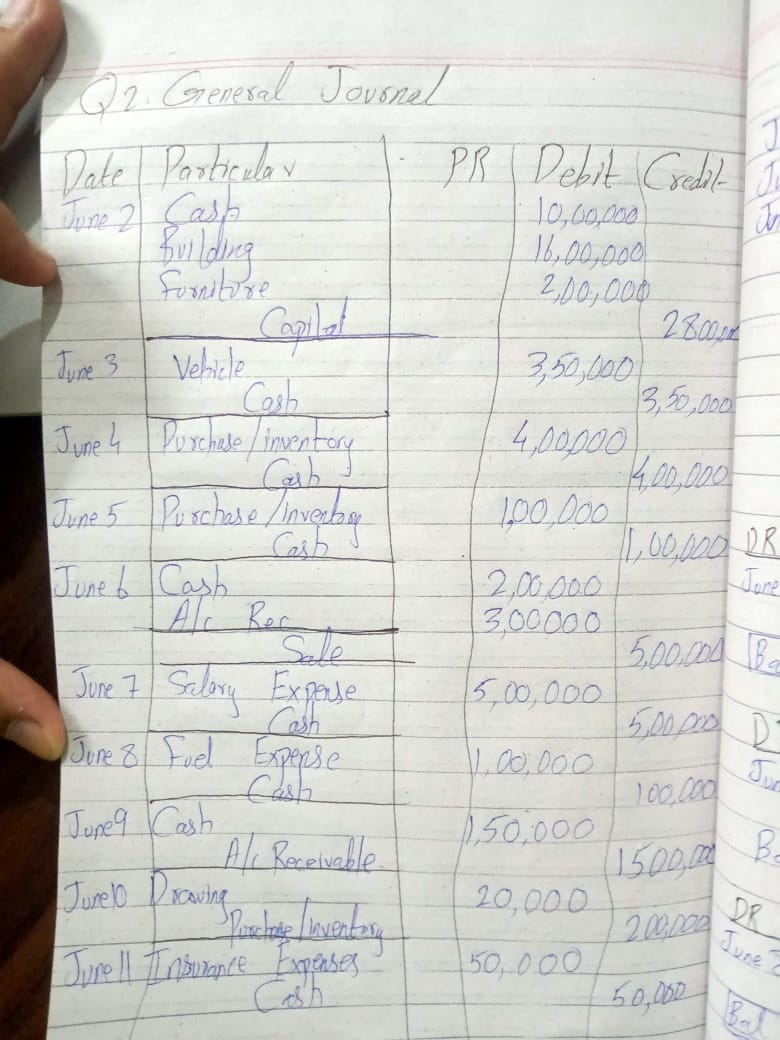 Q2. General Journal
Date Particular PR Debit Credit
June 2 Cash 10,00,000
Building 16,00,000
Furniture 2,00,000
Capital 2800,000
June 3 Vehicle 3,50,000
Cash 3,50,000
June 4 Purchase/inventory 4,00000
Cash 4,00,000
June 5 Purchase/inventory 1,00,000
Cash 1,00,000
June 6 Cash 2,00,000
A/c Rec 3,00000
Sale 5,00,000
June 7 Salary Expense 5,00,000
Cash 5,00,000
June 8 Fuel Expense 1,00,000
Cash 100,000
June 9 Cash 1,50,000
A/c Receivable 1500,000
June 10 Drawing 20,000
Purchase/inventory 200,000
June 11 Insurance Expenses 50,000
Cash 50,000
DR
June
DR
June
Bal